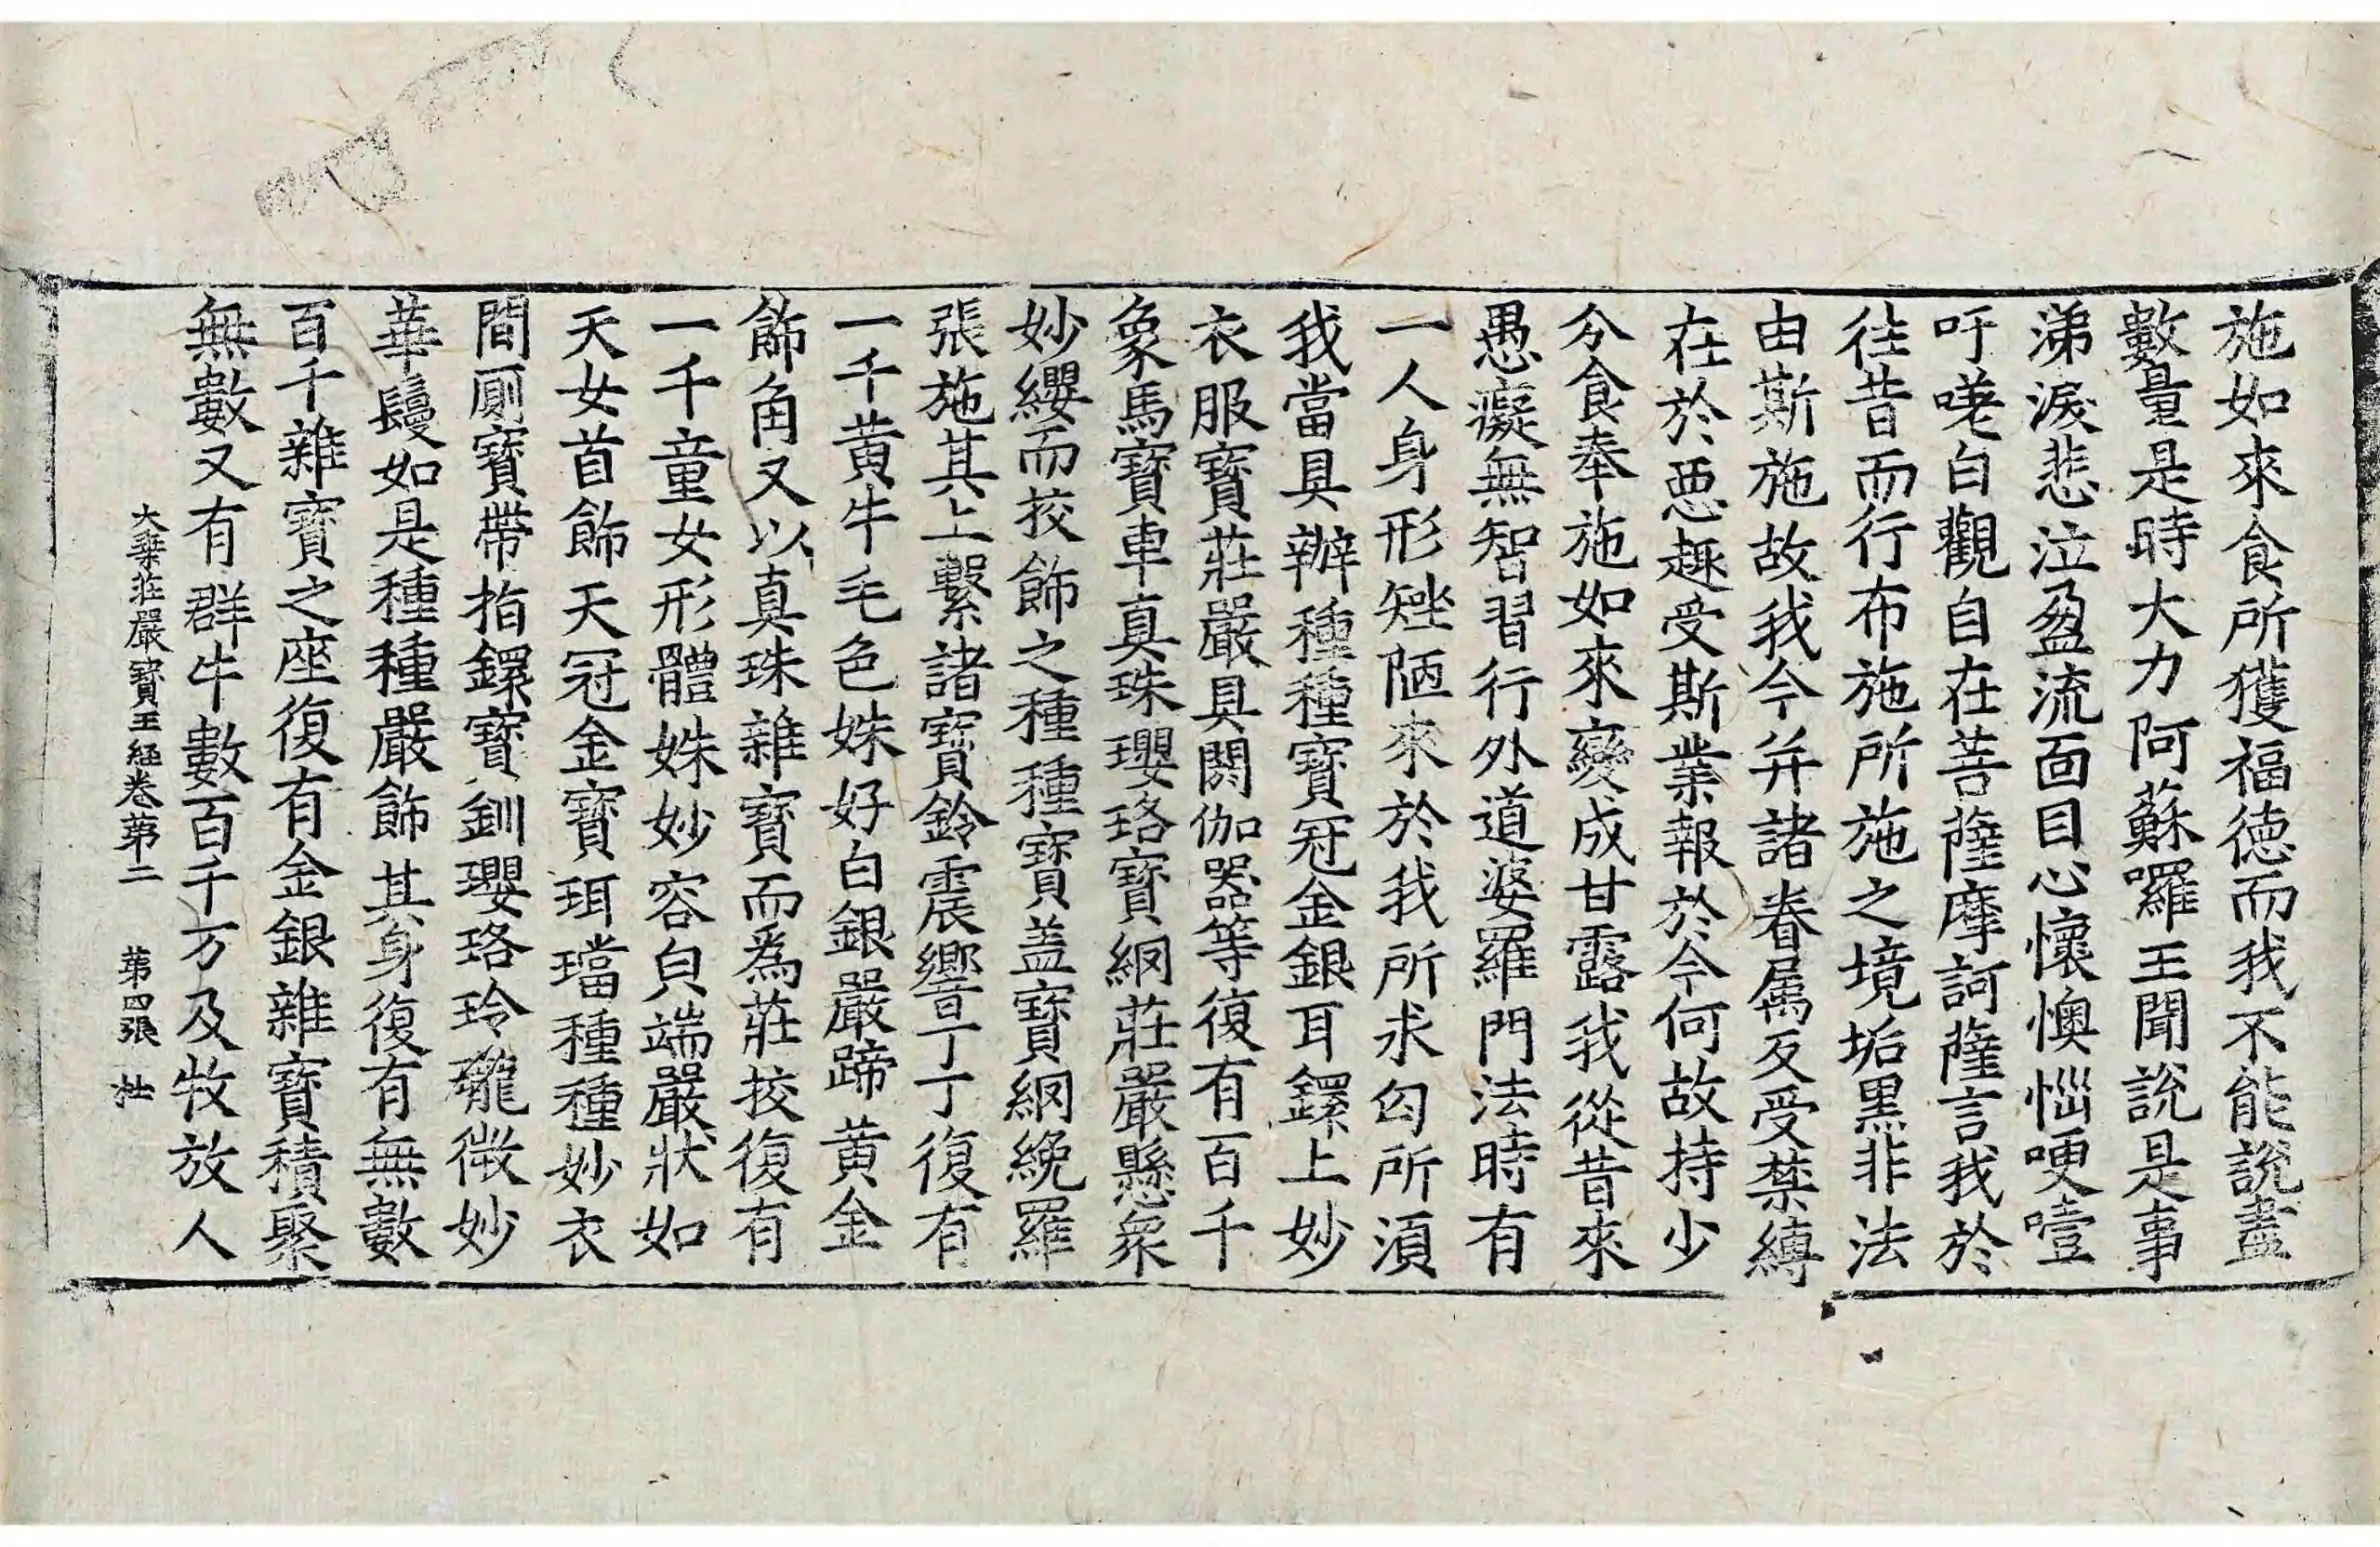 施如來食所獲福德而我不能說盡
數量是時大力阿蘇囉王聞說是事
涕淚悲泣盈流面目心懷懊惱哽噎
吁嗟白觀自在菩薩摩訶薩言我於
往昔而行布施所施之境垢黑非法
由斯施故我今并諸眷属反受禁縛
在於惡趣受斯業報於今何故持少
分食奉施如來變成甘露我從昔來
愚癡無智習行外道婆羅門法時有
一人身形矬陋來於我所求匃所須
我當具辦種種寶冠金銀耳鐶上妙
衣服寶莊嚴具閼伽器等復有百千
象馬寶車真珠瓔珞寶網莊嚴懸衆
妙纓而挍飾之種種寶盖寶網綩羅
張施其上繫諸寶鈴震響丁丁復有
一千黃牛毛色姝好白銀嚴蹄黃金
飾角又以真珠雜寶而為莊挍復有
一千童女形體姝妙容皃端嚴狀如
天女首飾天冠金寶珥璫種種妙衣
間厠寶帶指鐶寶釧瓔珞玲瓏微妙
華鬘如是種種嚴飾其身復有無數
百千雜寶之座復有金銀雜寶積聚
無數又有群牛數百千万及牧放人
大乗莊嚴寶王經卷苐二 苐四張